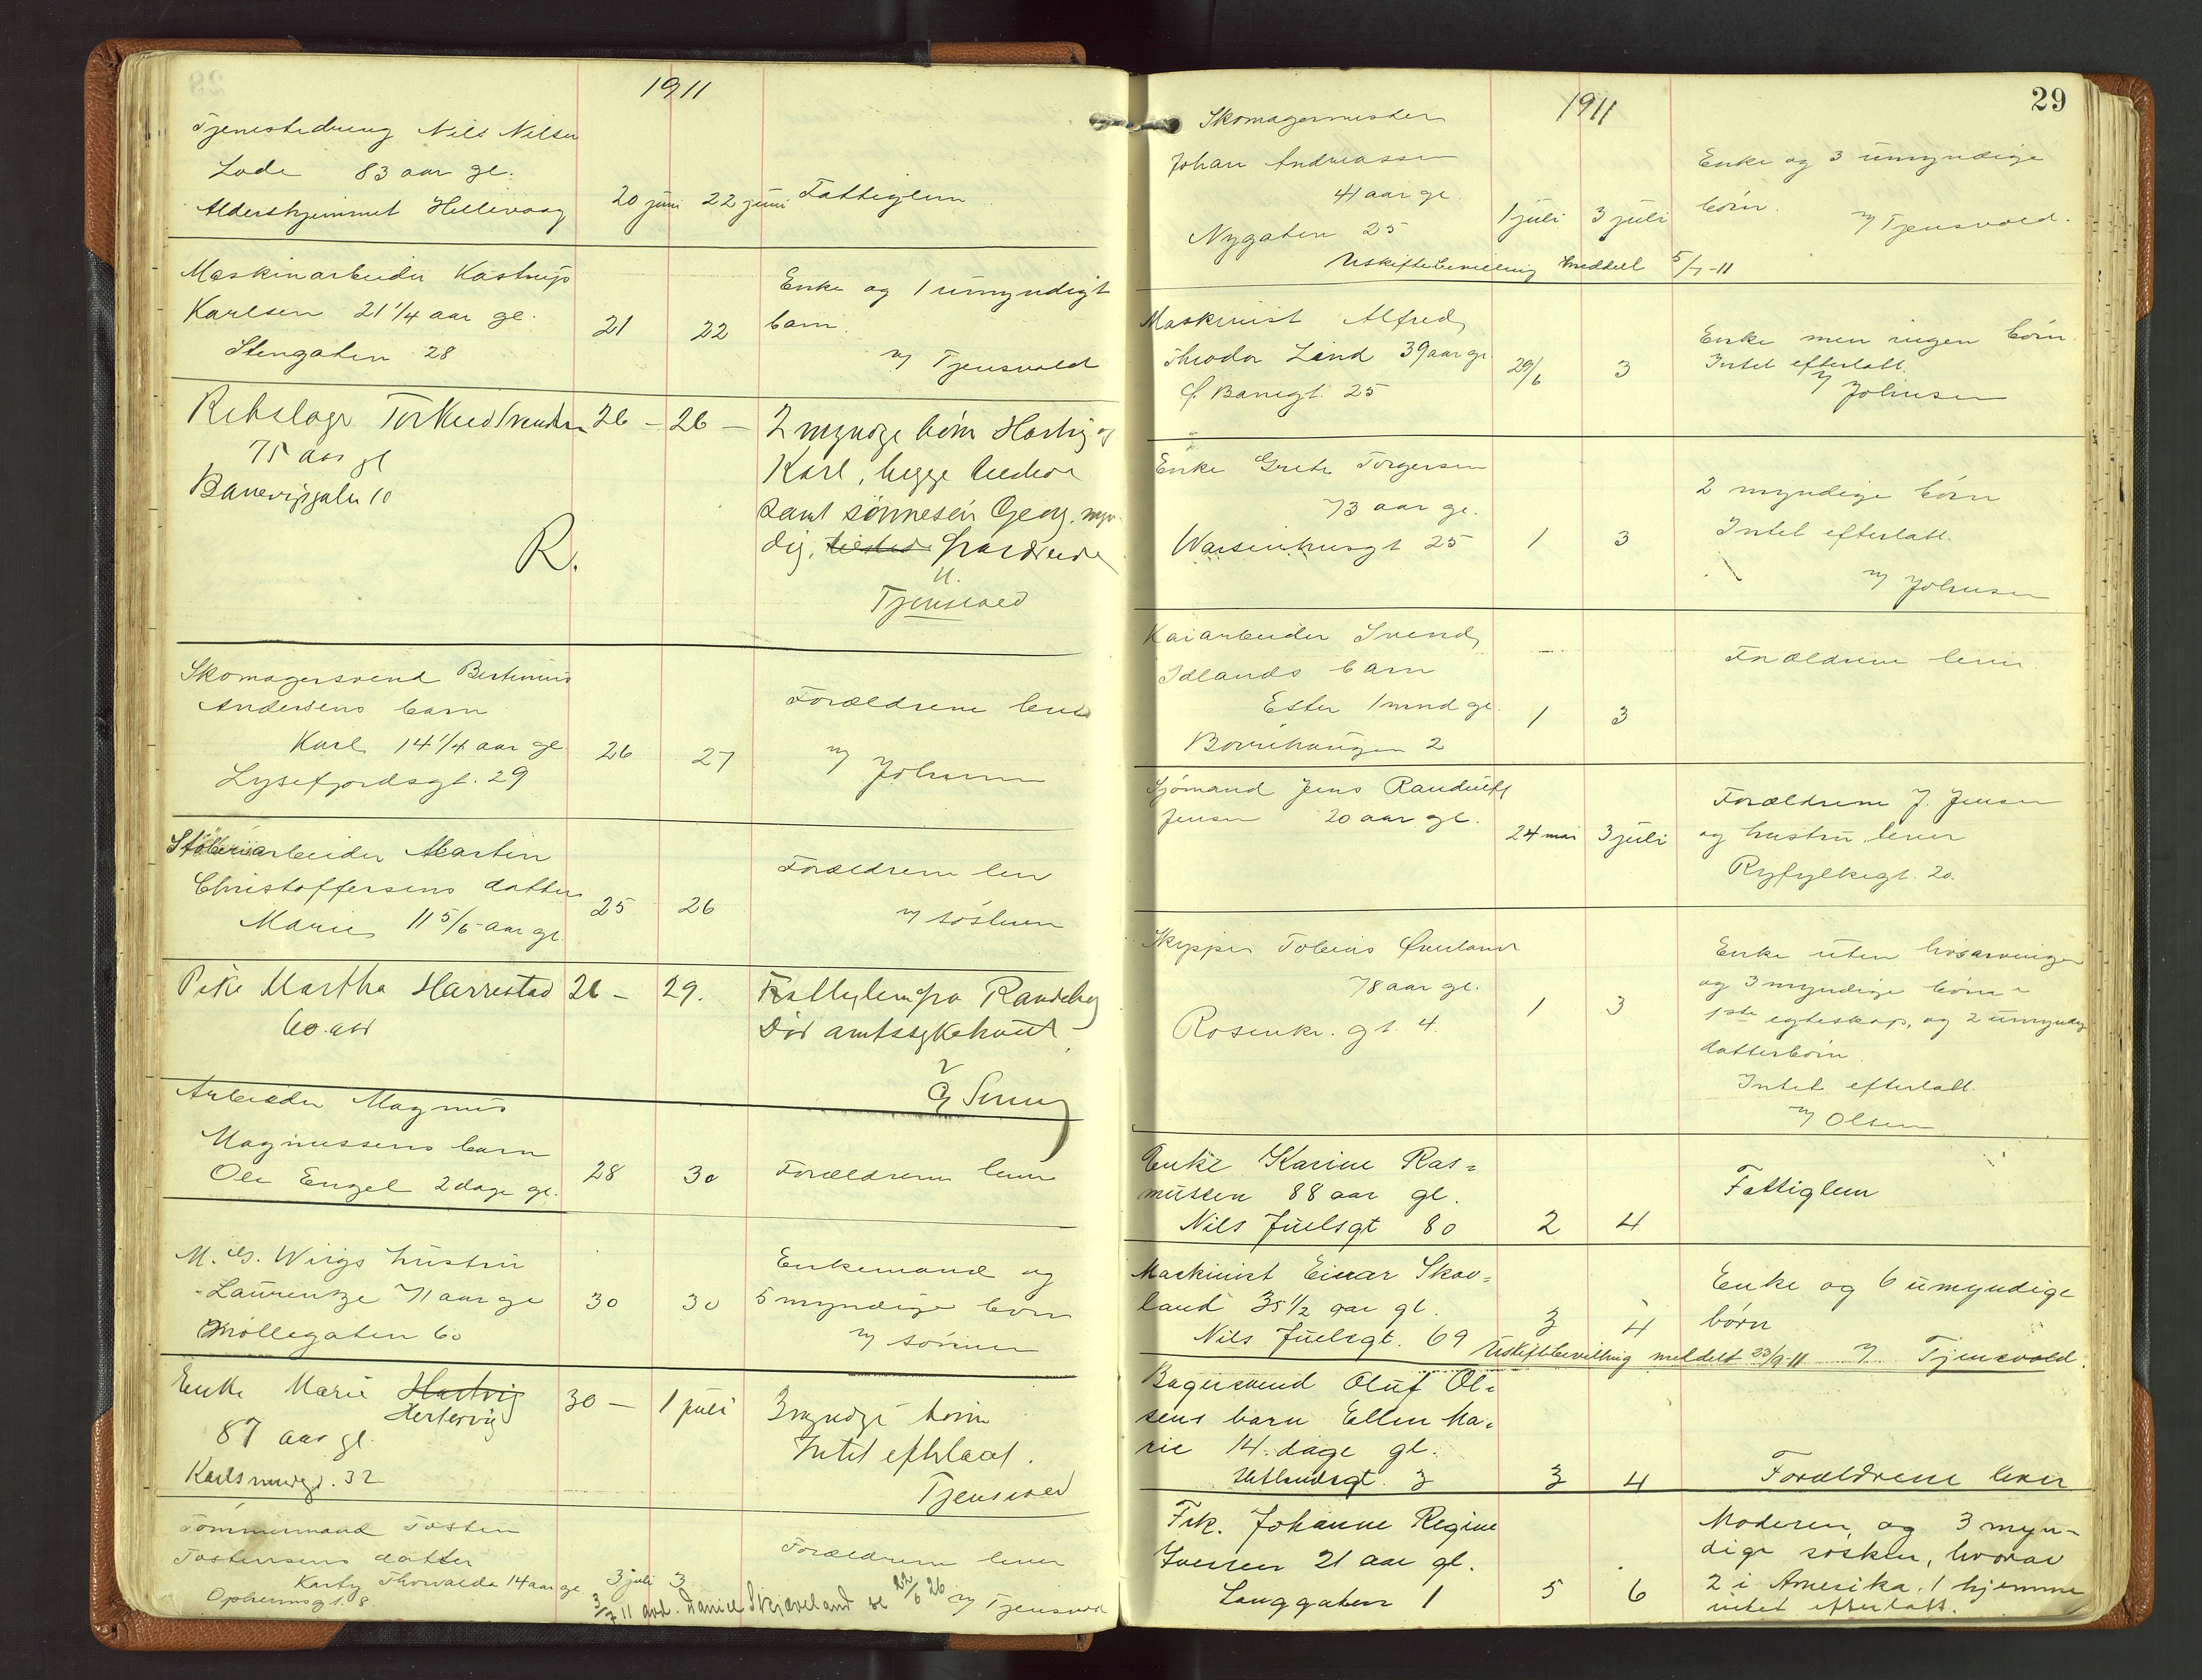 1911
Tjenestedreng Nils Nilsen
Lode 83 aar gl.
Aldershjemmet Hillevaag 20 juni 22 juni Fattiglem
Maskinarbeider Kastrup
Karlsen 21 1/4 aar gl. 21 22
Stengaten 28
Enke og 1 umyndigt
barn.
v/ Tjensvold
Rebslager Torkild 26 – 26 –
75 aar gl
Banevigsgaten 10
R.
2 myndige børn Hartvig og
Karl, begge
samt sønnesøn Georg, myn-
dig,
v.
Tjensvold
Skomagersvend Bertinius
Andersens barn
Karl 14 1/4 aar gl. 26 27
Lysefjordsgt. 29
Forældrene lever
v/ Johnsen
Støberiarbeider Martin
Christoffersens datter
Marie 11 5/6 aar gl. 25 26
Forældrene lever
v/
Pike Martha Harrestad 26 – 29.
60 aar
Fattiglem fra Randeberg
Død amtssykehuset
Arbeider Magnus
Magnussens barn
Ole Engel 2 dage gl. 28 30 Forældrene lever
M. G. Wiigs hustru
Laurentze 71 aar gl 30 30
Møllegaten 60
Enkemand og
5 myndige børn
v/ sønnen
Enke Marie Hartvig 30 – 1 juli
Hertervig
87 aar gl.
Karlsminegt. 32
3 myndige børn
Intet efterlatt.
Tjensvold
Tømmermand Tosten
Tostensens datter
Karty Thorvalda 14 aar gl. 3 juli 3
Opheimsgt. 8.
Forældrene lever
v/ Tjensvold
3/7 11 avd. Daniel Skjæveland se 22/6 26
1911
29
Skomagermester
Johan Andreassen
41 aar gl.
Nygaten 25 1 juli 3 juli
Enke og 3 umyndige
børn.
v/ Tjensvold.
Uskiftebevilling meddelt 5/7-11
Maskinist Alfred
Theodor Lind 39 aar gl 29/6 3
Ø. Banegt. 25
Enke men ingen børn.
Intet efterlatt.
v/ Johnsen
Enke Grete Torgersen
73 aar gl.
Waisenhusgt 25 1 3
2 myndige børn
Intet efterlatt.
v/ Johnsen
Kaiarbeider Svend
Idlands barn
Ester 1 mnd gl. 1 3
Bovrihaugen 2
Forældrene lever
Sjømand Jens Randulff
Jensen 20 aar gl. 24 mai 3 juli
Forældrene J. Jensen
og hustru lever
Ryfylkegt. 20.
Skipper Tobias Øverland
78 aar gl. 1 3
Rosenkr. gt. 4.
Enke uten livsarvinger
og 3 myndige børn i
1ste egteskap, og 2 umyndig
datterbørn.
Intet efterlatt.
v/ Olsen
Enke Karine Ras=
mussen 88 aar gl.
Nils Juelsgt 80 2 4
Fattiglem
Maskinist Einar Skov=
land 35 1/2 aar gl. 3 4
Nils Juelsgt. 69
Enke og 6 umyndige
børn
Uskiftebevilling meddelt 23/9-11 v/ Tjensvold.
Bagersvend Oluf Ol=
sens barn Ellen Ma=
rie 14 dage gl.
Hetlandsgt. 3 3 4 Forældrene lever
Frk. Johanne Regine
Iversen 21 aar gl.
Langgaten 1 5 6
Moderen, og 3 myn-
dige søsken, hvorav
2 i Amerika, 1 hjemme
intet efterlatt.